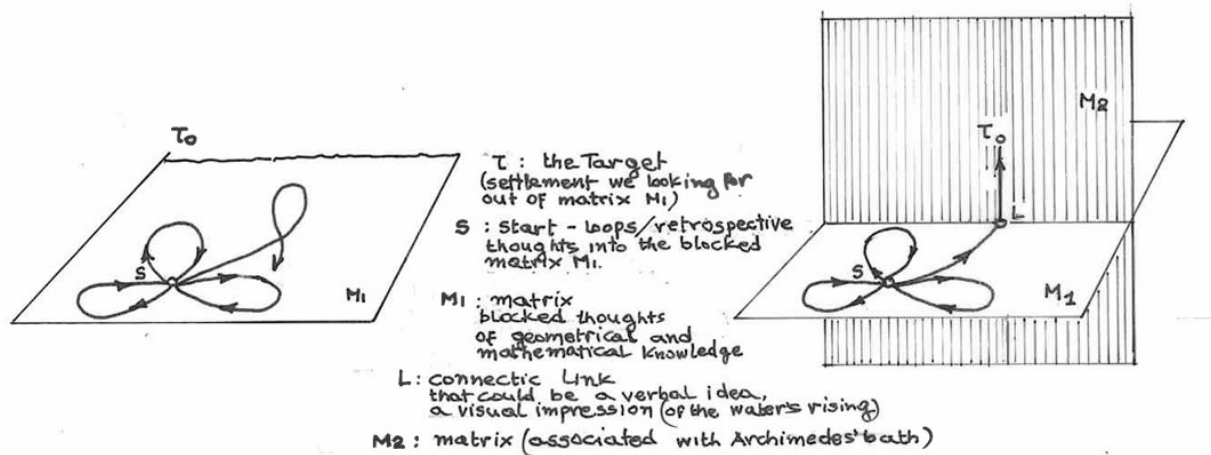 To
S
M1
T : the Target
(settlement we looking for
out of matrix M1)
S : start - loops/retrospective
thoughts into the blocked
matrix M1.
M1 : matrix
blocked thoughts
of geometrical and
mathematical knowledge
L : connectic Link
that could be a verbal idea,
a visual impression (of the water's rising)
M2 : matrix (associated with Archimedes' bath)
M2
To
L
S
M1